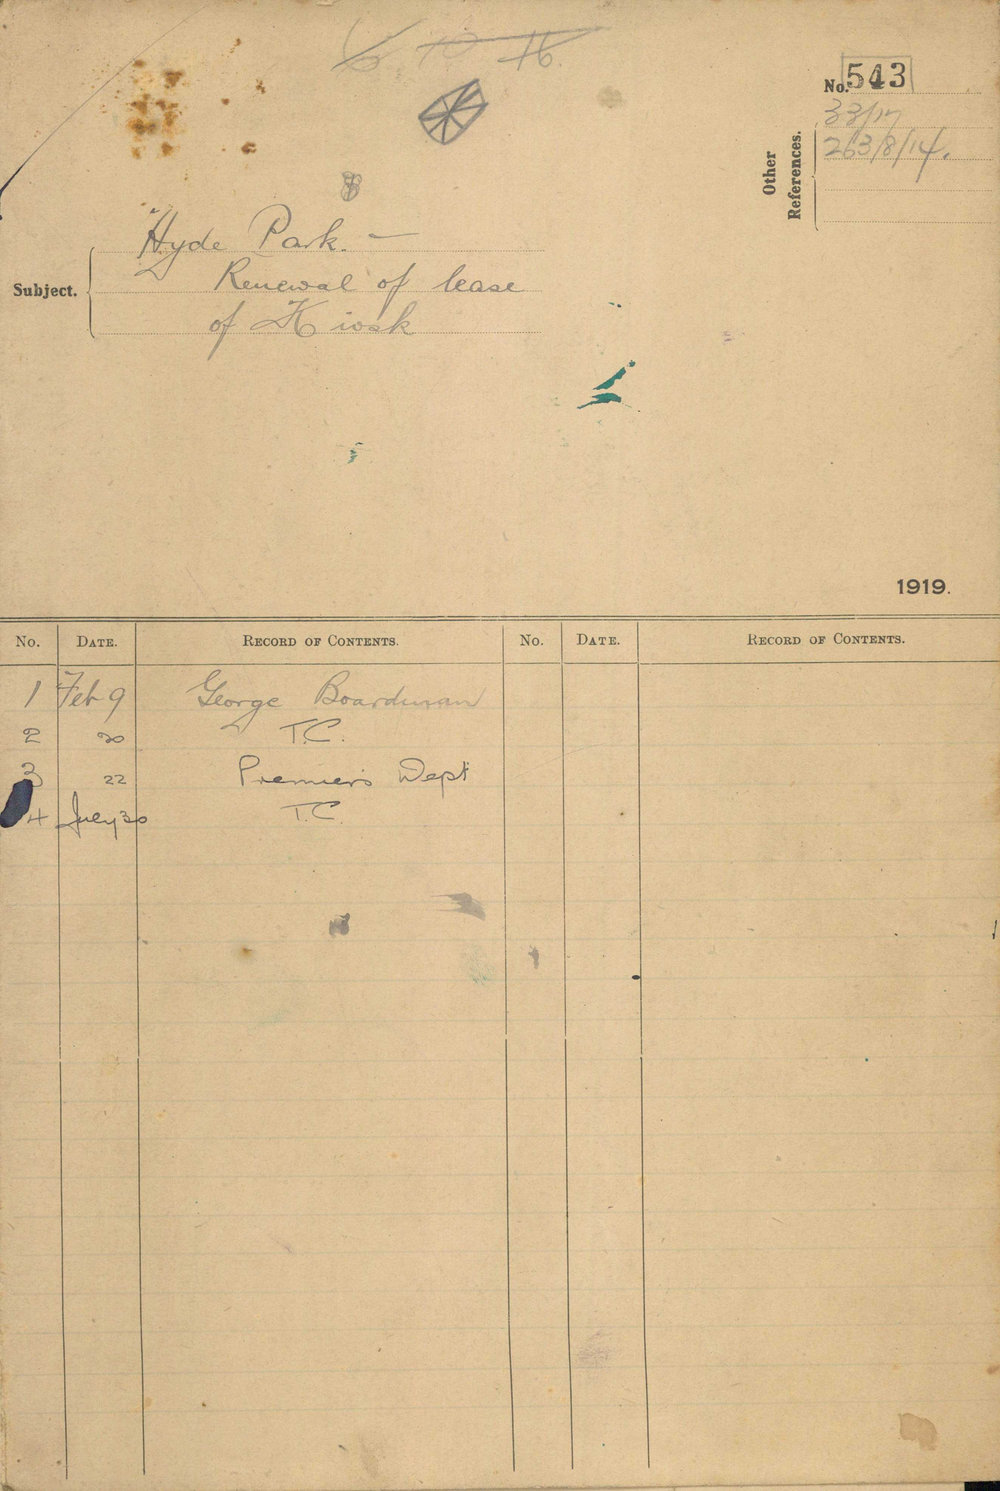 6. 10 16.
No. 543
33/17
263/8/14.
Other
References.
Hyde Park. —
Subject.
Renewal of lease
of Kiosk
1919.
No. DATE. RECORD OF CONTENTS. No. DATE. RECORD OF CONTENTS.
1 Feb 9 George Boardman
2 20 T.C.
3 22 Premier's Dept
4 July 30 T.C.